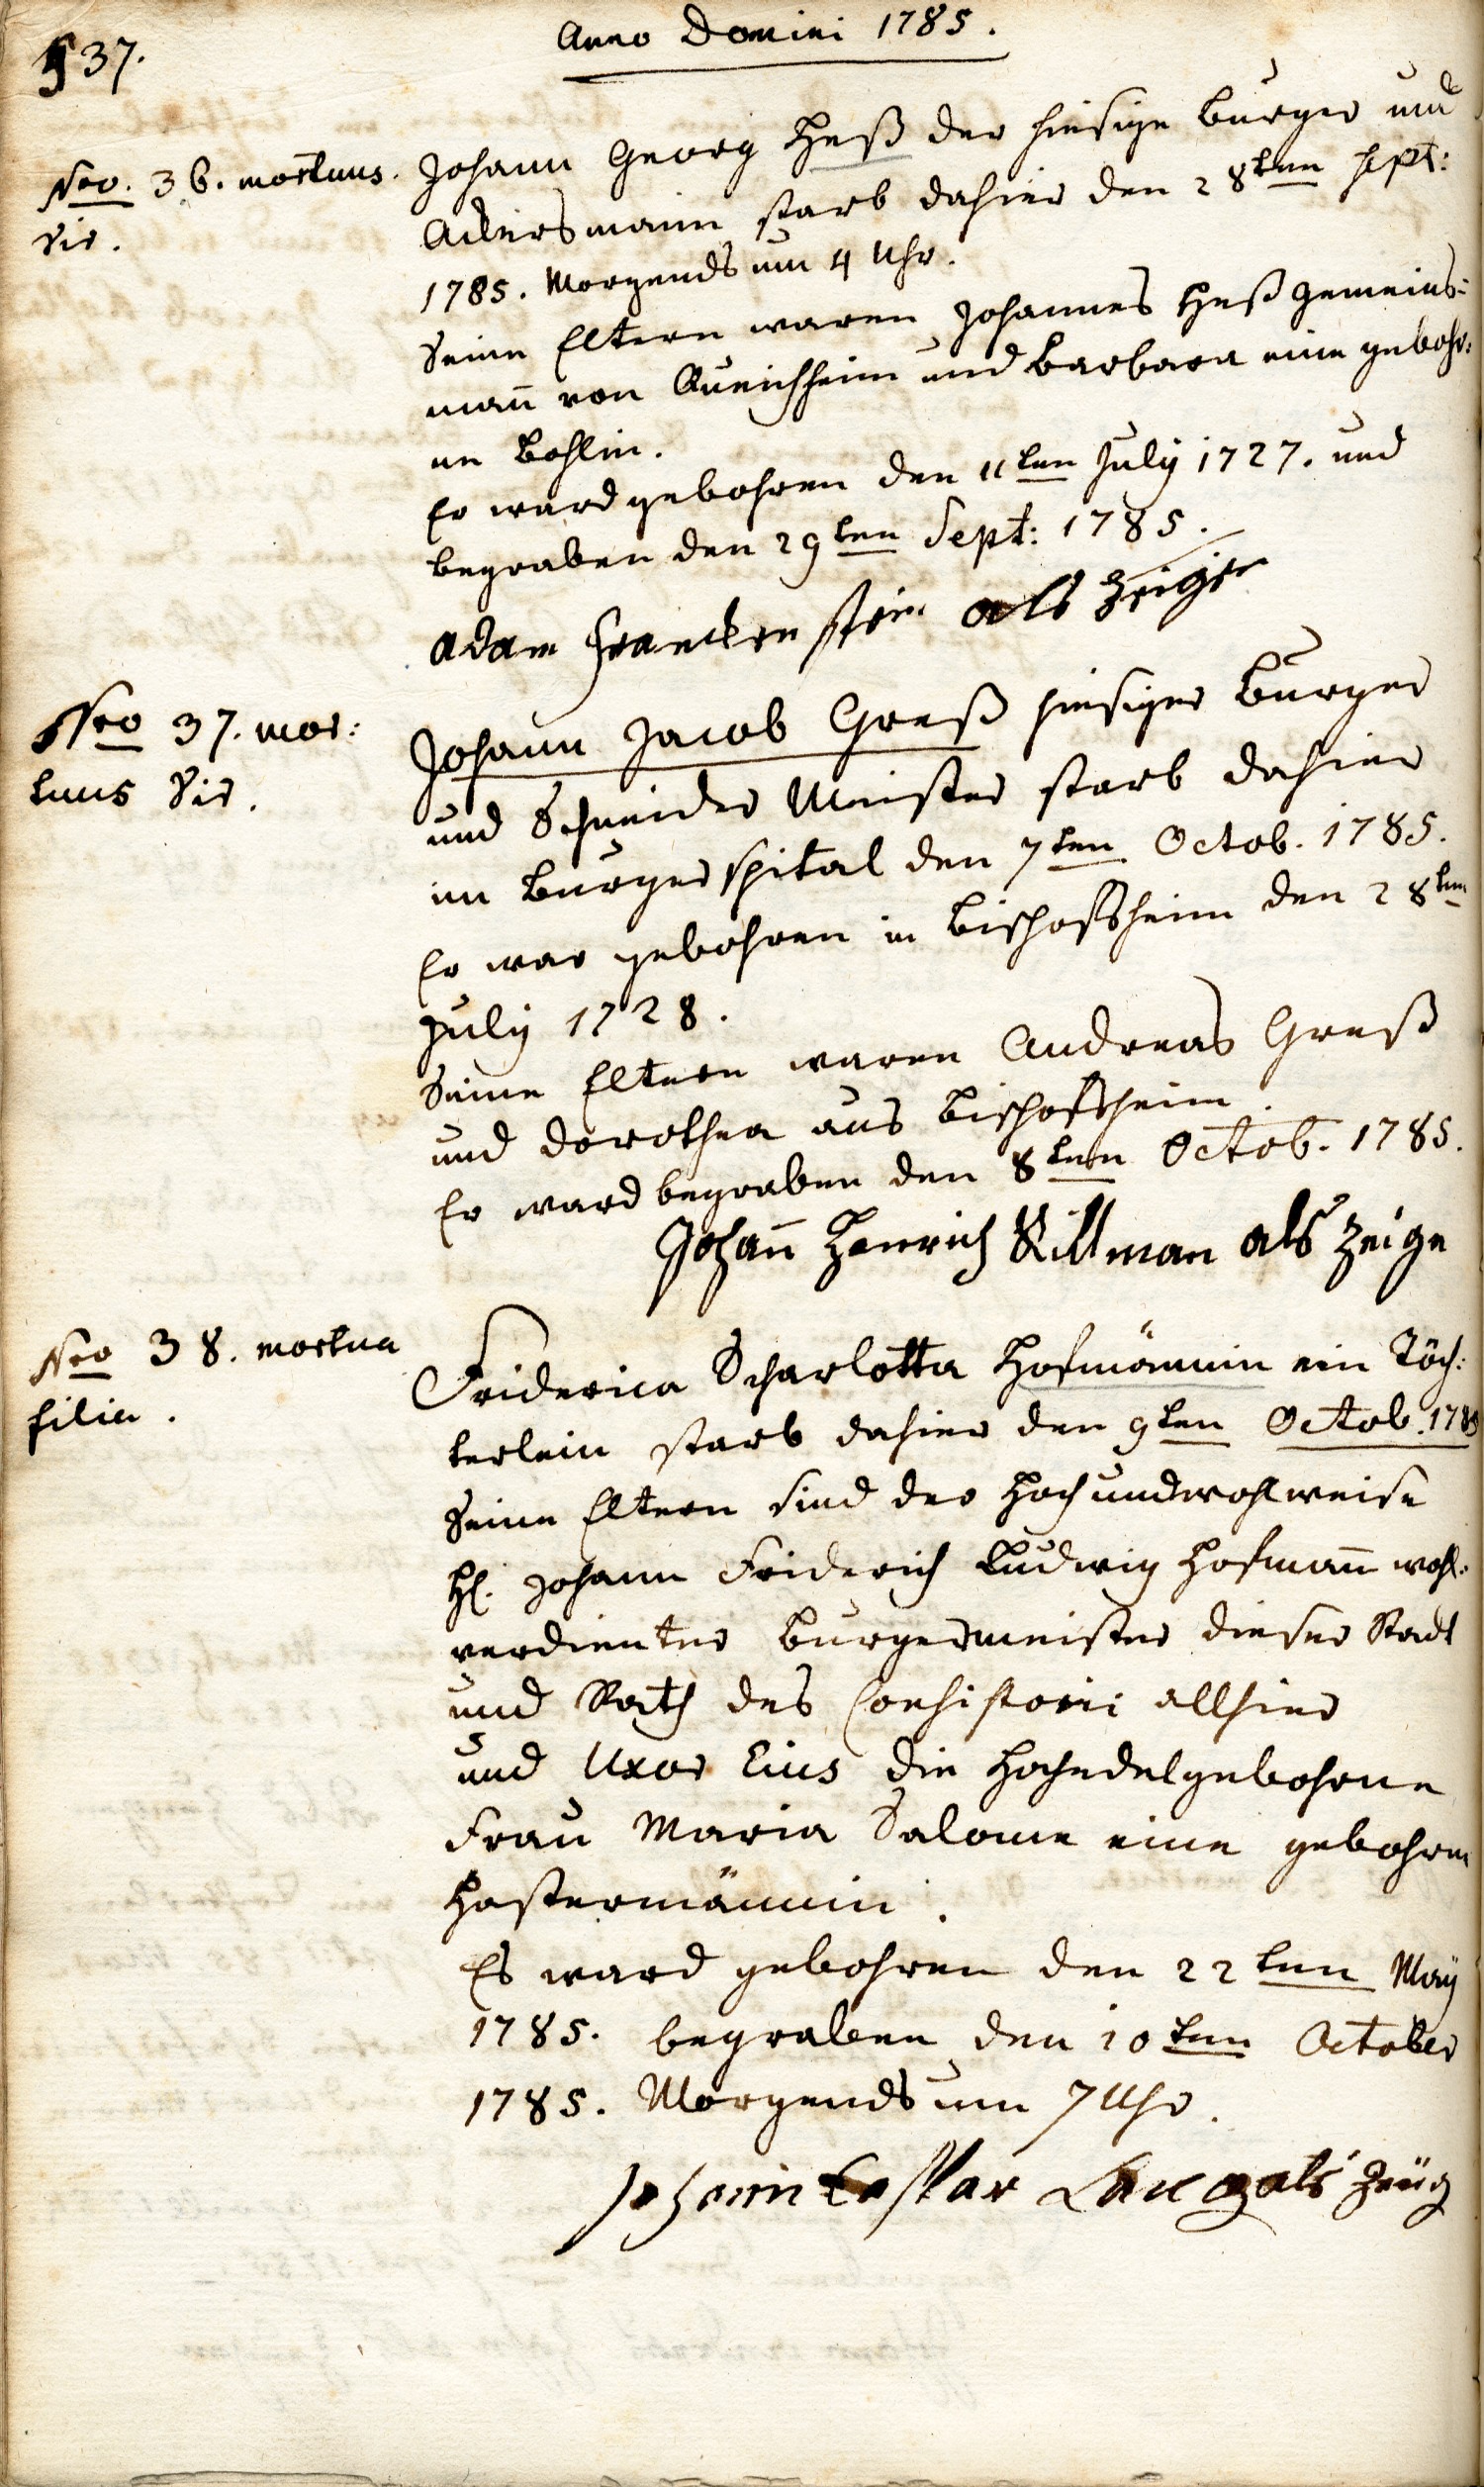 537.
Anno Domini 1785.
Nro. 36. mortuus.
Vir.
Johann Georg Heß der hiesige Burger und
Ackersmann starb dahier den 28ten Sept:
1785. Morgends um 4 Uhr.
Seine Eltern waren Johannes Heß gemeins-
mañ von Queichheim und Barbara eine gebohr:
ne Bohlin.
Er ward gebohren den 11ten July 1727. und
begraben den 29ten Sept: 1785.
Adam Franckenstein als Zeige
Nro 37. mor:
tuus Vir.
Johann Jacob Greß hiesiger Burger
und Schneider Meister starb dahier
im Burger Spital den 7ten Octob. 1785.
Er war gebohren in Bischofsheim den 28ten
July 1728.
Seine Eltern waren Andreas Greß
und Dorothea aus Bischofsheim.
Er ward begraben den 8ten Octob. 1785.
Johañ Henrich Rillman als Zeige
Nro 38. mortua
filia.
Friderica Scharlotta Hofmännin ein Töch:
terlein starb dahier den 9ten Octob. 1785
Seine Eltern sind der Hoch und wohlweise
H. Johann Friderich Ludwig Hofmañ wohl:
verdienter Burgermeister dieser Stadt
und Rath des Consistorii allhier
und Uxor Eius die Hochedelgebohrne
Frau Maria Salome eine gebohrne
Hostermännin.
Es ward gebohren den 22ten May
1785. begraben den 10ten October
1785. Morgends um 7 Uhr.
Johann Caspar Lang als Zeüg